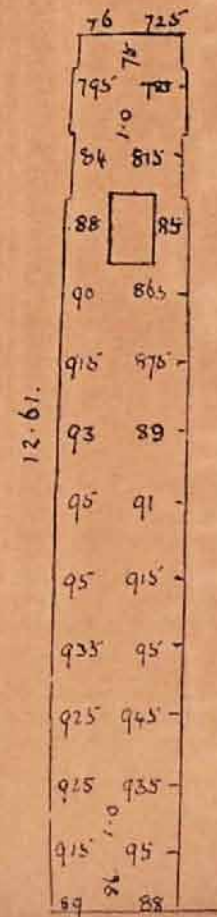 76 725
75
795
1.0
84 815
88 85
90 865
915 875
93 89
12.61.
95 91
95 915
935 95
925 945
925 935
1.0
915 95
86
89 88